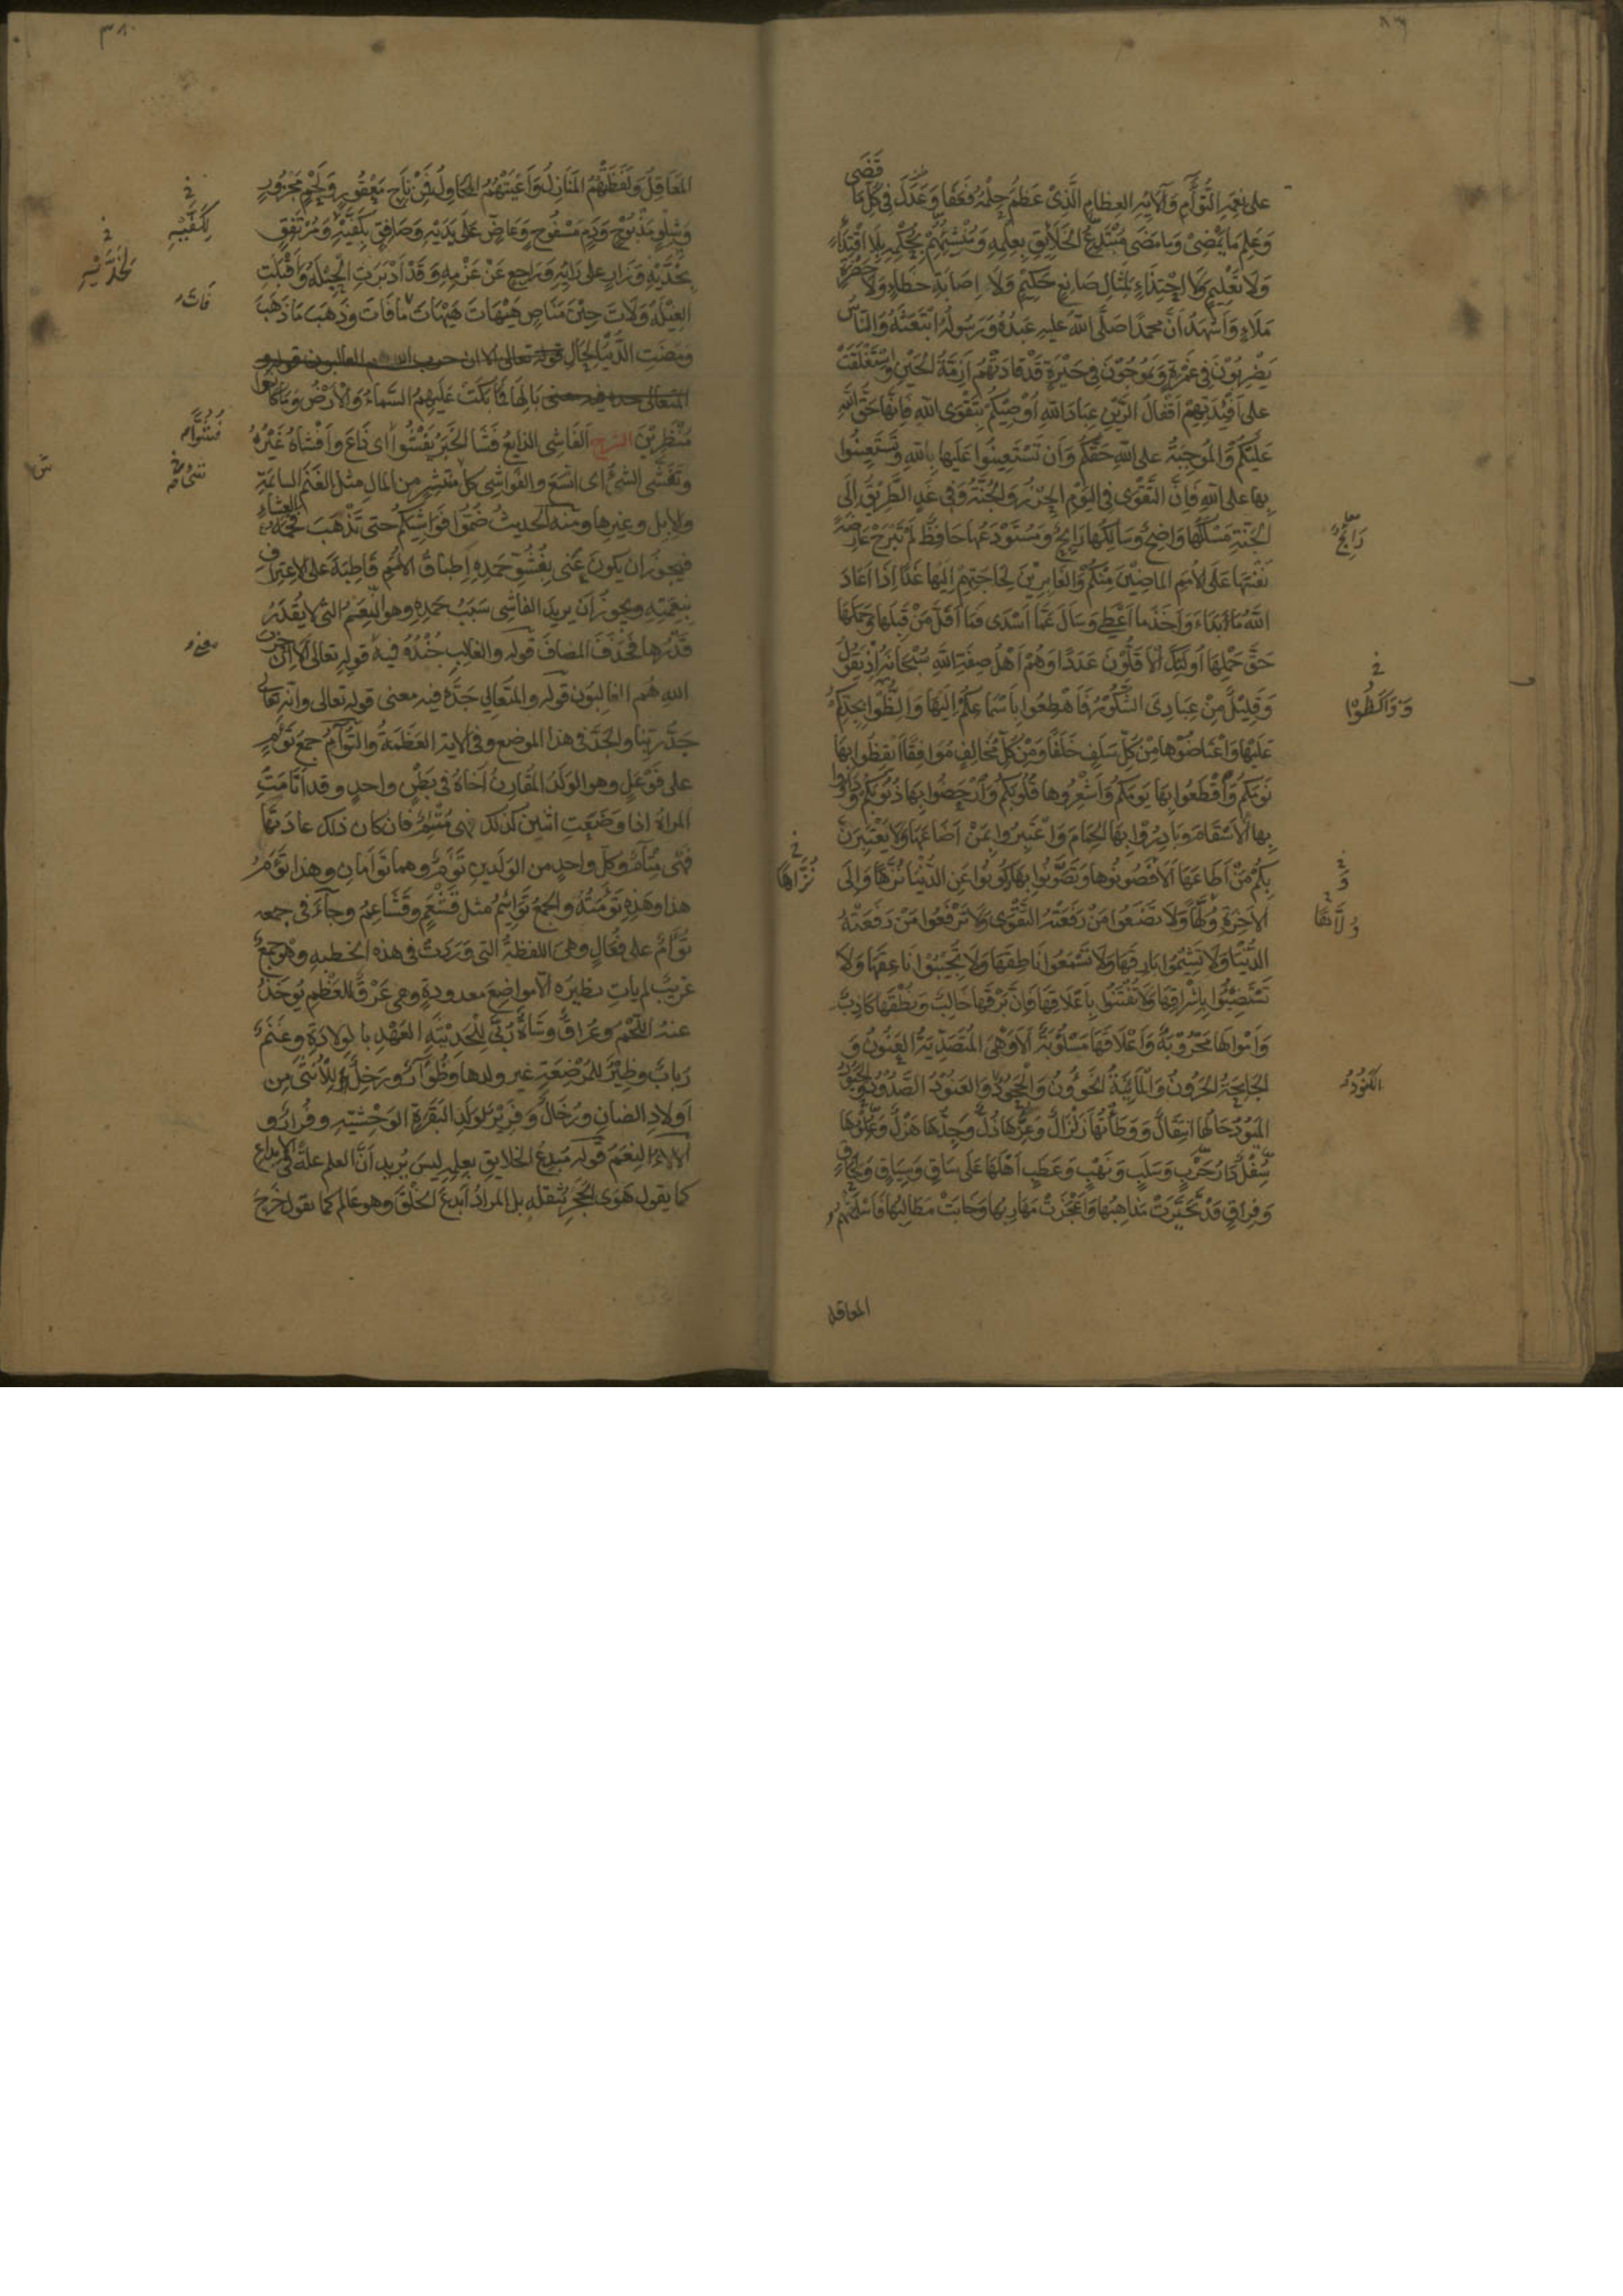 على نعمه التُّؤَامِ وَآلَائِهِ العِظَامِ الَّذِىْ عَظُمَ حِلْمُهُ فَعَفَا وَعَدَلَ فِى كُلِّ مَا قَضَى
وَعَلِمَ مَا يَمْضِىْ وَمَا مَضَى مُبْتَدِعُ الخَلَائِقِ بِعِلْمِهِ وَمُنْشِئُهُمْ بِحُكْمِهِ بِلَا اقْتِدَاءٍ
وَلَا تَعْلِيمٍ وَلَا احْتِذَاءٍ لِمِثَالِ صَانِعٍ حَكِيْمٍ وَلَا اِصَابَةِ خطاءٍ وَلَا حَضْرَةِ
مَلَاءٍ وَاَشْهَدُ اَنَّ محمدًا صَلَّى اللهُ عليهِ عَبْدُهُ وَرَسُولُهُ ابْتَعَثَهُ وَالنَّاسُ
يَضْرِبُوْنَ فِى غَمْرَةٍ وَيَمُوجُوْنَ فِى حَيْرَةٍ قَدْ قَادَتْهُمْ اَزِمَّةُ الحَيْنِ وَاسْتَغْلَقَتْ
على اَفْئِدَتِهِمْ اَقْفَالُ الرَّيْنِ عِبَادَ اللهِ اُوْصِيْكُمْ بِتَقْوَى اللهِ فَاِنَّهَا حَقُّ اللهِ
عَلَيْكُمْ وَالمُوجِبَةُ على اللهِ حَقَّكُمْ وَاَنْ تَسْتَعِينُوا عَلَيها بِاللهِ وَتَسْتَعِينُوا
بها على اللهِ فَاِنَّ التَّقْوَى فِى اليَوْمِ الحِرْزُ وَالجُنَّةُ وَفِى غَدٍ الطَّرِيْقُ اِلَى
الجَنَّةِ مَسْلَكُهَا وَاضِحٌ وَسَالِكُهَا رَابِحٌ وَمُسْتَوْدَعُهَا حَافِظٌ لَمْ تَبْرَحْ عَارِضَةً
رَابِحٌ معا
نَفْسَهَا عَلَى الأُمَمِ الماضِيْنَ مِنْكُمْ وَالغَابِرِيْنَ لِحَاجَتِهِمْ اِلَيْهَا غَدًا اِذَا اَعَادَ
اللهُ مَا اَبْدَاءَ وَاَخَذَ ما اَعْطَى وَسَاَلَ عَمَّا اَسْدَى فَمَا اَقَلَّ مَنْ قَبِلَهَا وَحَمَلَهَا
حَقَّ حَمْلِهَا اُولَئِكَ الأَقَلُّوْنَ عَدَدًا وَهُمْ اَهْلُ صِفَةِ اللهِ سُبْحَانَهُ اِذْ يَقُوْلُ
وَقَلِيْلٌ مِنْ عِبَادِىَ الشَّكُوْرُ فَاَهْطِعُوا بِاَسْمَاعِكُمْ اِلَيْهَا وَاَلِظُّوْا بِجِدِّكُمْ
وَوَاكِظُوْا
عَلَيْهَا وَاعْتَاضُوْهَا مِنْ كُلِّ سَلَفٍ خَلَفًا وَمِنْ كُلِّ مُخَالِفٍ مُوَافِقًا اَيْقِظُوا بِهَا
نَوْمَكُمْ وَاقْطَعُوا بِهَا يَوْمَكُمْ وَاَشْعِرُوها قُلُوْبَكُمْ وَارْحَضُوا بِهَا ذُنُوْبَكُمْ وَدَاوُوا
بها الاَسْقَامَ وَبَادِرُوْا بِهَا الحِمَامَ وَاعْتَبِرُوا بِمَنْ اَضَاعَهَا وَلَا يَعْتَبِرَنَّ
بِكُمْ مَنْ اَطَاعَهَا اَلَا فَصُوْنُوها وَتَصَوَّنُوا بِهَا وَكُوْنُوا عَنِ الدُّنْيَا نُزَّاهًا وَاِلَى
نُزَّاهًا
الآخِرَةِ وُلَّاهًا وَلَا تَضَعُوا مَنْ رَفَعَتْهُ التَّقْوَى وَلَا تَرْفَعُوا مَنْ رَفَعَتْهُ
وُلَّاهًا
الدُّنْيَا وَلَا تَشِيْمُوا بَارِقَهَا وَلَا تَسْمَعُوا نَاطِقَهَا وَلَا تُجِيْبُوا نَاعِقَهَا وَلَا
تَسْتَضِيْئُوا بِاِشْرَاقِهَا وَلَا تُفْتَنُوا بِاَعْلَاقِهَا فَاِنَّ بَرْقَهَا خَالِبٌ وَنُطْقَهَا كَاذِبٌ
وَاَمْوَالَهَا مَحْرُوْبَةٌ وَاَعْلَاقَهَا مَسْلُوْبَةٌ اَلَا وَهِىَ المُتَصَدِّيَةُ العَنُوْنُ وَ
الجَامِحَةُ الحَرُوْنُ وَالمَائِنَةُ الخَؤُوْنُ وَالجَحُوْدُ وَالعَنُوْدُ الصَّدُوْدُ وَالحَيُوْدُ
الكَنُوْدُ
المَيُوْدُ حَالُهَا انتِقَالٌ وَوَطْاَتُهَا زِلْزَالٌ وَعِزُّهَا ذُلٌّ وَجِدُّهَا هَزْلٌ وَعُلْوُهَا
سُفْلٌ دَارُ حَرْبٍ وَسَلَبٍ وَنَهْبٍ وَعَطَبٍ اَهْلُهَا عَلَى سَاقٍ وَسِيَاقٍ وَلَحَاقٍ
وَفِرَاقٍ قَدْ تَحَيَّرَتْ مَذَاهِبُهَا وَاَعْجَزَتْ مَهَارِبُهَا وَخَابَتْ مَطَالِبُهَا فَاَسْلَمَتْهُمُ
المعاقل
٣٨٠
المَعَاقِلُ وَلَفَظَتْهُمُ المَنَازِلُ وَاَعْيَتْهُمُ المَحَاوِلُ فَمِنْ نَاجٍ مَعْقُورٍ وَلَحْمٍ مَجْزُورٍ
وَشِلْوٍ مَذْبُوْحٍ وَدَمٍ مَسْفُوْحٍ وَعَاضٍّ عَلَى يَدَيْهِ وَصَافِقٍ بِكَفَّيْهِ وَمُرْتَفِقٍ
لِكَفَّيْهِ
بِخَدَّيْهِ وَزَارٍ على رَايِهِ وَرَاجِعٍ عَنْ عَزْمِهِ وَقَدْ اَدْبَرَتِ الحِيْلَةُ وَاَقْبَلَتِ
لِخَدَّيْهِ
الغِيْلَةُ وَلَاتَ حِيْنَ مَنَاصٍ هَيْهَاتَ هَيْهَاتَ قَدْ فَاتَ مَا فَاتَ وَذَهَبَ مَا ذَهَبَ
فَاتَ
وَمَضَتِ الدُّنْيَا لِحَالِ قوله تعالى الا ان حزب الله هم الغالبون قوله و
المتعالى جده فيه معنى بَالِهَا فَمَا بَكَتْ عَلَيْهِمُ السَّمَاءُ وَالْاَرْضُ وَمَا كَانُوْا
مُنْظَرِيْنَ الشرح اَلفَاشِى الذايعُ فَشَا الخَبَرُ يَفْشُوْا اى ذَاعَ وَاَفْشَاهُ غَيْرُهُ
فُشُوًّا
وَتَفَشَّى الشئُ اى اتسَعَ والفَوَاشِى كلُّ مُنْتَشِرٍ من المالِ مثل الغَنَمِ السائمَةِ
والابل وغيرها ومنه الحديثُ ضُمُّوْا فَوَاشِيَكُمْ حتى تَذْهَبَ فَحْمَةُ العِشَاءِ
فيجوز ان يكونَ عَنَى بِفُشُوِّ حَمْدِهِ اِطباقَ الأُمَمِ قَاطِبَةً على الاعترافِ
بنعمتِهِ ويجوز اَنْ يريدَ الفاشى سَبَبُ حَمْدِهِ وهو النِّعَمُ التى لا يُقْدَرُ
قَدْرُها فَحُذِفَ المضافَ قوله والغالبِ جُنْدُهُ فيه قوله تعالى اَلَا اِنَّ حزبَ
اللهِ هُم الغالبَون قوله والمتَعالى جَدُّهُ فيه معنى قوله تعالى وانّه تعالى
جَدُّ ربِّنا والجَدُّ فى هذا الموضع وفى الاية العَظَمَةُ والتُّؤَامُ جمعُ تَوْأَمٍ
على فَوْعَلٍ وهو الوَلَدُ المُقَارِنُ اَخَاهُ فى بَطْنٍ واحدٍ وقد اَتْأَمَتِ
المراةُ اذا وَضَعَتِ اثنين كذلك فهى مُتْئِمٌ فان كان ذلك عادَتَهَا
فهى مِتْآمٌ وكلُّ واحدٍ من الوَلَدينِ تَوْأَمٌ وهما تَوْأَمانِ وهذا تَوْأَمُ
هذا وهَذِهِ تَوْأَمَتُهُ والجمعُ تَوَائِمُ مثل قَشْعَمٍ وقَشَاعِمَ وجآءَ فى جمعه
تُؤَامٌ على فُعَالٍ وهى اللفظةُ التى وَرَدَتْ فى هذه الخطبهِ وهو جمعٌ
غريبٌ لم ياتِ نظيرُه الّا مواضعَ معدودةٍ وهى عَرْقٌ للعَظْمِ يُوخَذُ
عنه اللَّحْمُ وعُراقٌ وشاةٌ رُبَّى لِلْحَدِيْثَةِ العَهْدِ بالولادةِ وغَنَمٌ
رُبابٌ وظِئْرٌ للمُرْضِعَةِ غير ولدها وظُؤَارٌ ورَخِلٌ لِلْاُنْثَى مِن
اَولادِ الضانِ ورُخَالٌ وفَرِيْرٌ لولَدِ البَقَرَةِ الوَحْشِيّةِ وفُرارٌ و
اَلآلاءُ النِعَمُ قوله مُبْدِعُ الخلايقِ بعِلمِهِ ليسَ يُريد اَنَّ العلم علةٌ فى الابداعِ
كما يقول هَوَى الحَجَرُ بِثقلهِ بل المرادُ اَبْدَعَ الخَلْقَ وهو عَالِمٌ كما يقول خَرَجَ